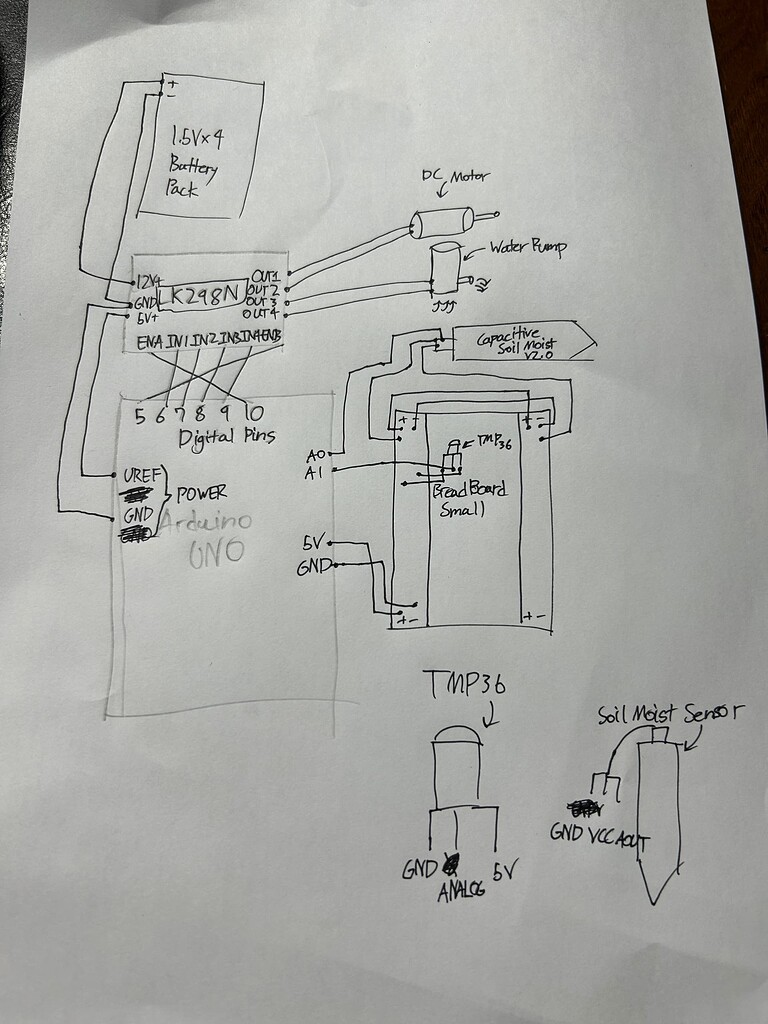 +
-
1.5V×4
Battery
Pack
DC Motor
Water Pump
12V+
GND
5V+
K298N
OUT1
OUT2
OUT3
OUT4
ENA IN1 IN2 IN3 IN4 ENB
Capacitive
Soil Moist
V2.0
5 6 7 8 9 10
Digital Pins
A0
A1
+ -
+ -
TMP36
BreadBoard
Small
UREF
GND
POWER
Arduino
UNO
5V
GND
+ -
+ -
TMP36
GND
ANALOG
5V
Soil Moist Sensor
GND VCC AOUT